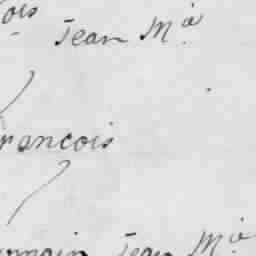 ois Jean M.ie
rancois
rmain Jean M.ie